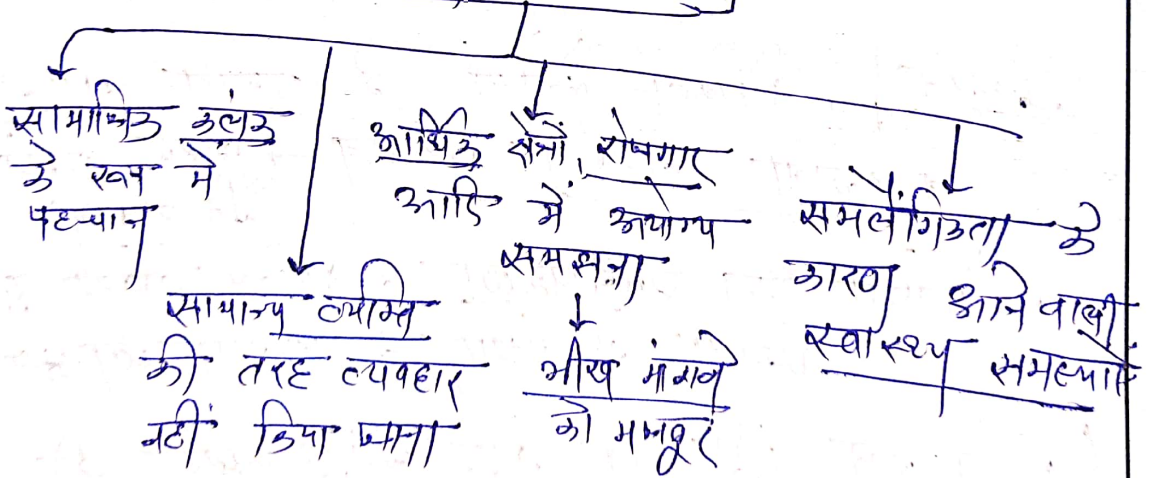 सामाजिक कलंक
के रूप में
पहचान
सामान्य व्यक्ति
की तरह व्यवहार
नहीं किया जाना
आर्थिक क्षेत्रों, रोजगार
आदि में अयोग्य
समझना
भीख मांगने
को मजबूर
समलैंगिकता के
कारण आने वाली
स्वास्थ्य समस्याएँ